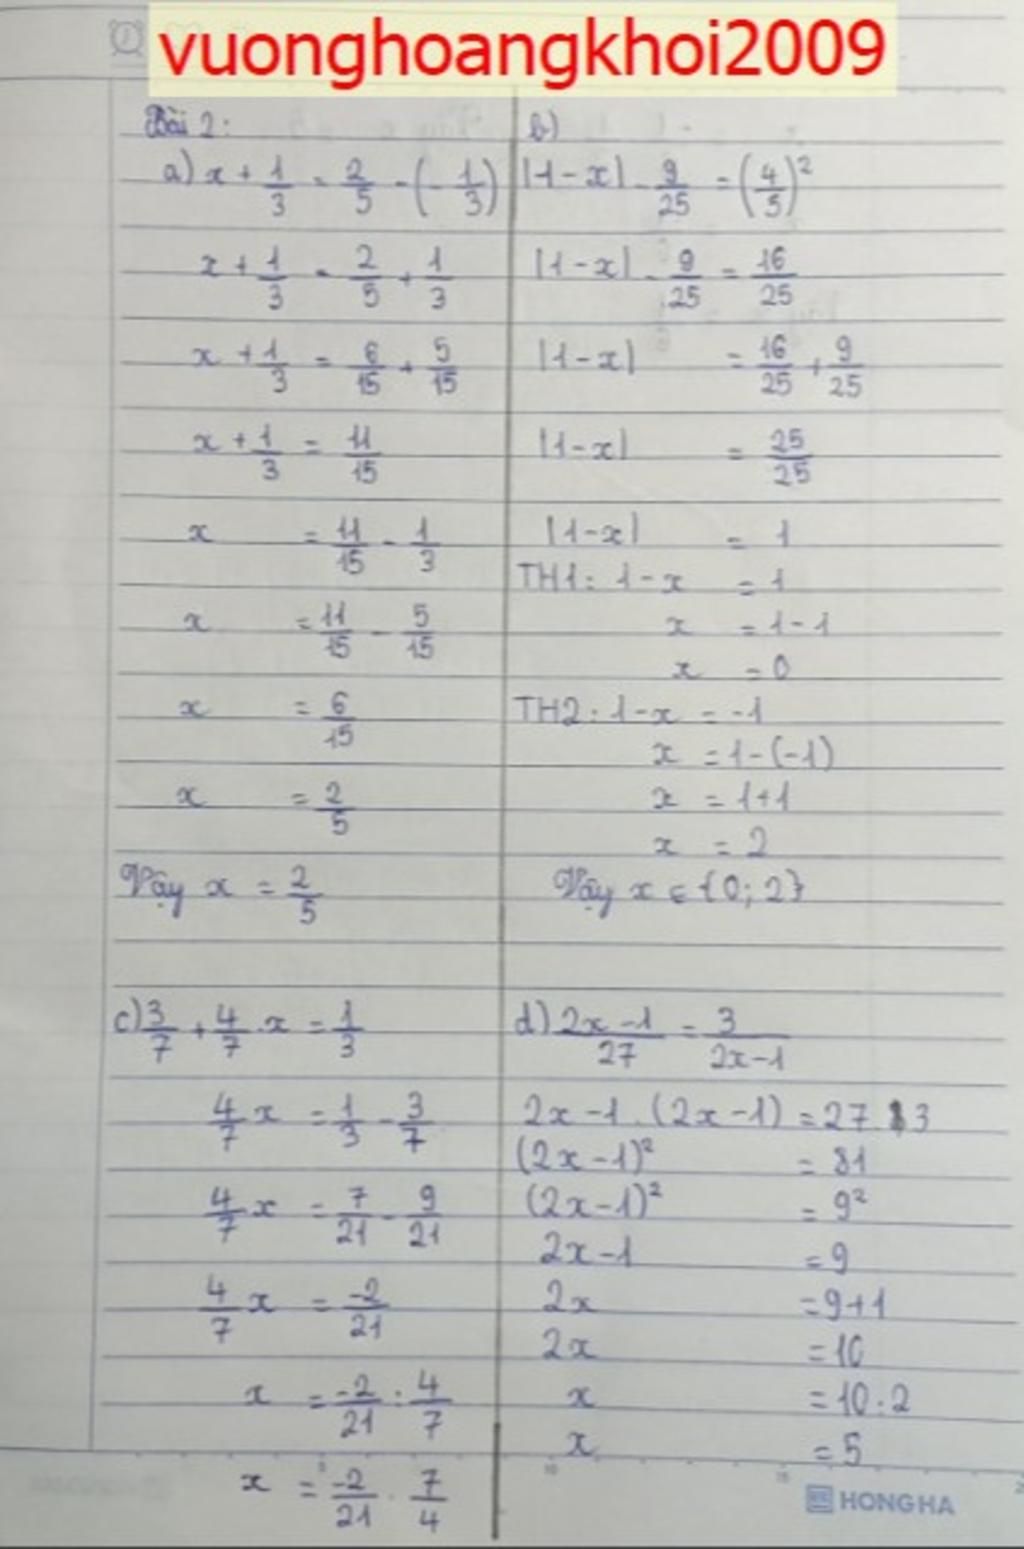 vuonghoangkhoi2009
Bài 2:
a) x + 1/3 = 2/5 - (-1/3)
x + 1/3 = 2/5 + 1/3
x + 1/3 = 6/15 + 5/15
x + 1/3 = 11/15
x = 11/15 - 1/3
x = 11/15 - 5/15
x = 6/15
x = 2/5
Vậy x = 2/5
b)
|1 - x| - 9/25 = (4/5)²
|1 - x| - 9/25 = 16/25
|1 - x| = 16/25 + 9/25
|1 - x| = 25/25
|1 - x| = 1
TH1: 1 - x = 1
x = 1 - 1
x = 0
TH2: 1 - x = -1
x = 1 - (-1)
x = 1 + 1
x = 2
Vậy x ∈ {0; 2}
c) 3/7 + 4/7 . x = 1/3
4/7 x = 1/3 - 3/7
4/7 x = 7/21 - 9/21
4/7 x = -2/21
x = -2/21 : 4/7
x = -2/21 . 7/4
d) 2x - 1/27 = 3/2x - 1
2x - 1 . (2x - 1) = 27 . 3
(2x - 1)² = 81
(2x - 1)² = 9²
2x - 1 = 9
2x = 9 + 1
2x = 10
x = 10 : 2
x = 5
HONG HA